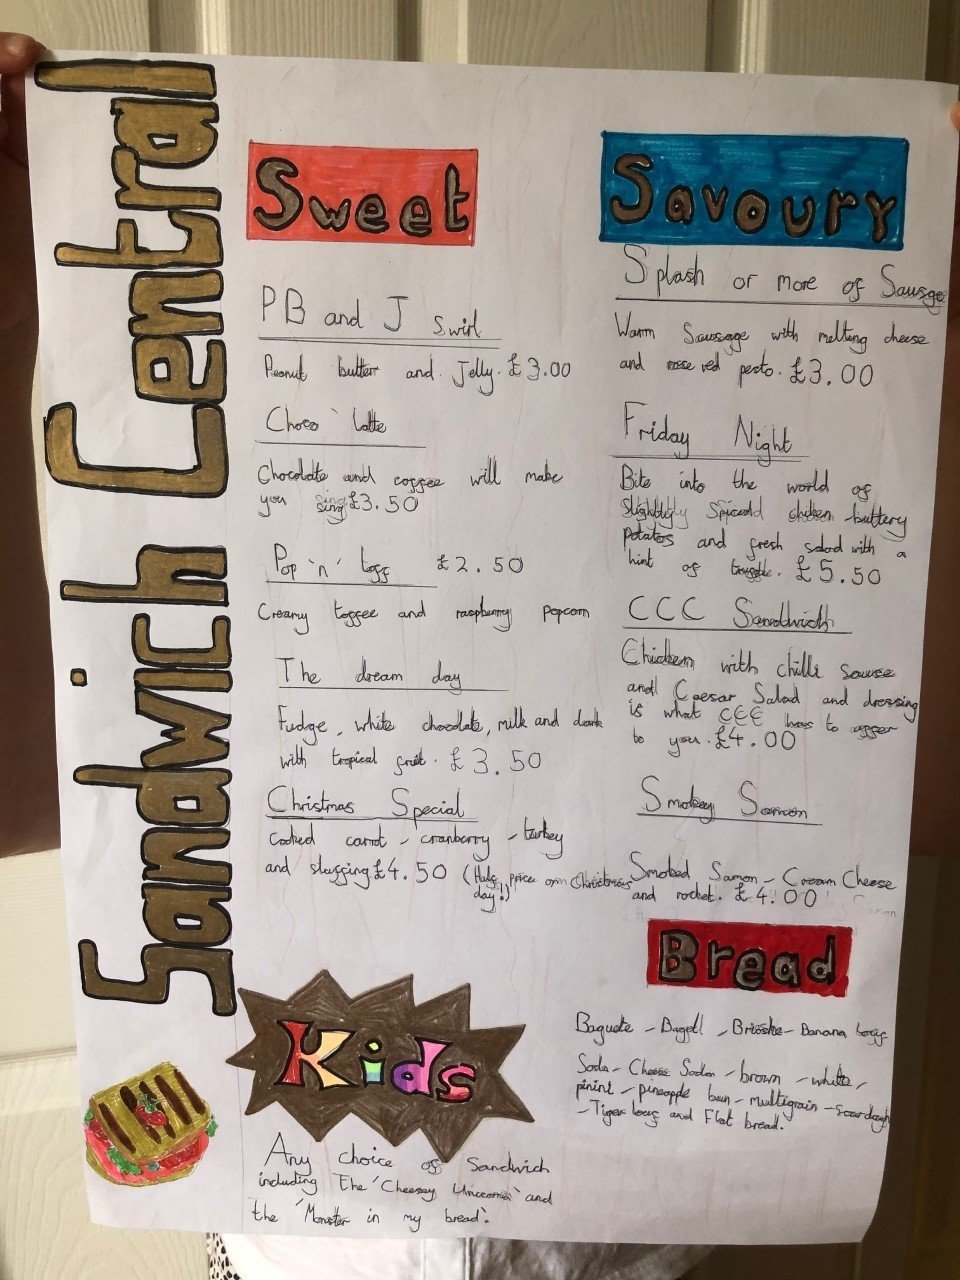 Sandwich Central
Sweet
PB and J Swirl
Peanut butter and Jelly. £3.00
Choco'latte
Chocolate and coffee will make
you sing £3.50
Pop 'n' toff £2.50
Creamy toffee and raspberry popcorn
The dream day
Fudge, white chocolate, milk and dark
with tropical fruit. £3.50
Christmas Special
Cooked carrot - cranberry - turkey
and stuffing £4.50 (Half price on Christmas
day!)
Kids
Any choice of Sandwich
including The 'Cheesey Unicorn' and
the 'Monster in my bread'.
Savoury
Splash or more of Sausge
Warm Sausage with melting cheese
and rose red pesto. £3.00
Friday Night
Bite into the world of
slightly Spiced chiken - buttery
potatos and fresh salad with a
hint of truffle. £5.50
CCC Sandwich
Chicken with chilli sauce
and Caesar Salad and dressing
is what CCC has to offer
to you. £4.00
Smokey Samon
Smoked Samon - Cream Cheese
and rocket. £4.00
Bread
Baguete - Bagel - Brioshe - Banana loaf
Soda - Cheese Soda - brown - white -
pinini - pineapple bun - multigrain - sourdough
- Tiger loaf and Flat bread.